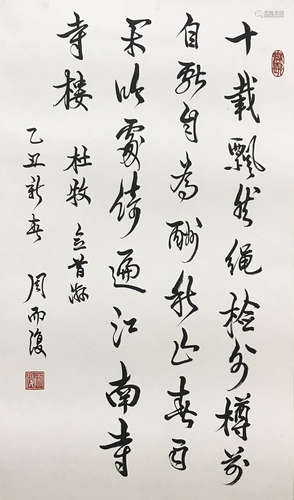 十載飄然繩檢外樽前
自獻自為酬秋山春雨
閑吟處倚遍江南寺
寺樓
杜牧 念昔游
乙丑新春 周而復